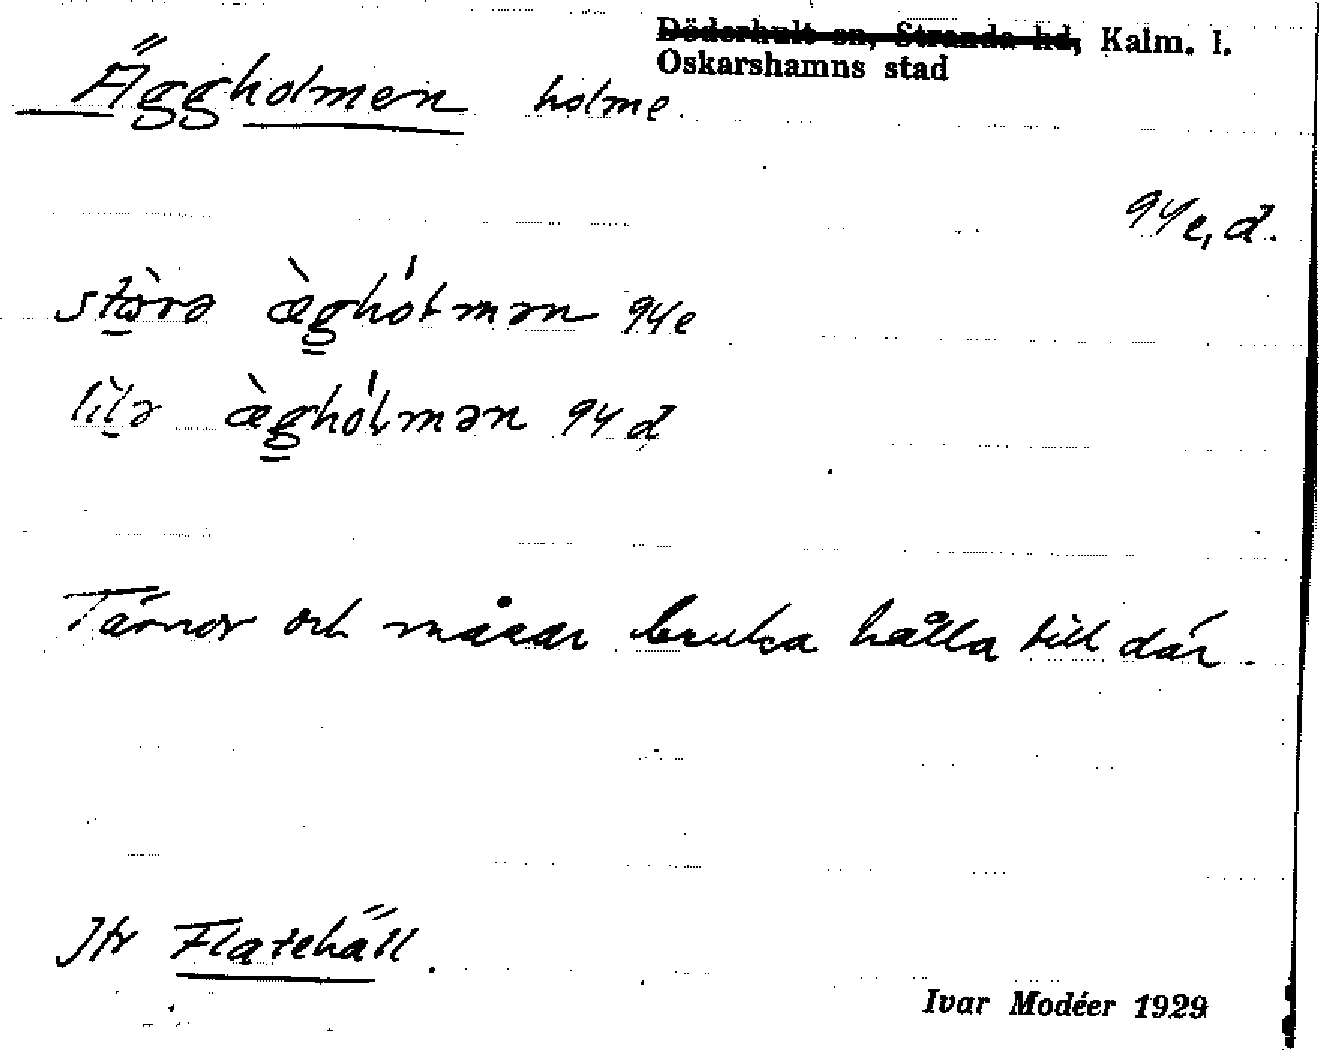 Döderhult sn, Stranda hd, Kalm. l.
Oskarshamns stad
Äggholmen holme.
94e, d.
stòrə æ̀ghólmən 94e
lìlə æ̀ghólmən 94d
Tärnor och måsar bruka hålla till där.
Jfr Flatehäll.
Ivar Modéer 1929